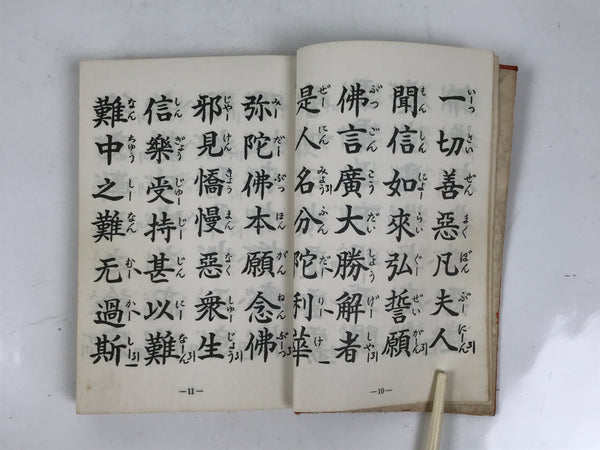 一切善惡凡夫人
聞信如來弘誓願
佛言廣大勝解者
是人名分陀利華
—10—
弥陀佛本願念佛
邪見憍慢惡衆生
信樂受持甚以難
難中之難无過斯
—11—